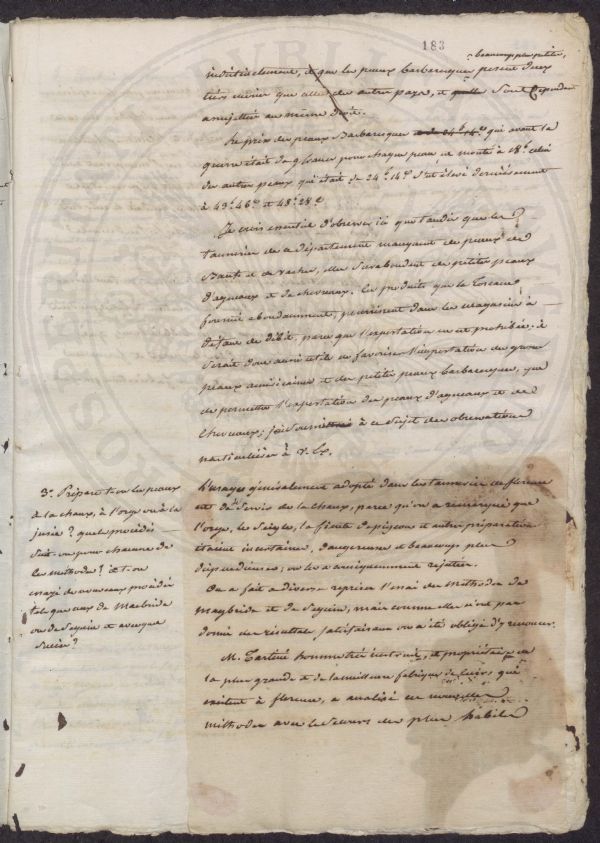 183
beaucoup plus petites,
indistinctement, et que les peaux barbaresques pesent deux
tiers moins que celles des autres pays, et sont Cependant
assujetties au même droit.
Le prix des peaux Barbaresques qui avant la
guerre était de 9 francs pour chaque peau est monté à 18.f celui
des autres peaux qui était de 24.f 14.s s'est élevé dernièrement
à 43.f 46.s et 48.f 28.c
Je crois essentiel d'observer ici que tandis que les
tanneries de ce département manquent de peaux de
Bœufs et de vaches, elles surabondent de petites peaux
d'agneaux et de chevreaux. Ces produits que la Toscane
fournit abondamment, pourrissent dans les magasins à
défaut de débit, parce que l'exportation en est prohibée. il
serait donc aussi utile de favoriser l'importation des grosses
peaux américaines et des petites peaux barbaresques, que
de permettre l'exportation des peaux d'agneaux et de
chevreaux; j'ai soumis à ce sujet des observations
particulières à V. Ex.
3.° Prépare t-on les peaux
à la chaux, à l'orge ou à la
jusée? quels procédés
suit-on pour chacune de
ces méthodes? a t-on
essayé de nouveaux procédés
tels que ceux de Macbride
ou de Seguin et avec quel
succès?
L'usage généralement adopté dans les tanneries de florence
est de se servir de la chaux, parce qu'on a remarqué que
l'orge, le seigle, la fiente de pigeon et autres préparations
étaient incertaines, dangereuses et beaucoup plus
dispendieuses; on les a unanimement rejetées.
On a fait à diverses reprises l'essai des méthodes de
Maybride et de Seguin, mais comme elles n'ont pas
donné des résultats satisfaisans on a été obligé d'y renoncer.
M. homme très instruit, et propriétaire de
la plus grande et de la meilleure fabrique de cuirs qui
existent à florence, a analisé ces nouvelles
méthodes avec le secours des plus habiles